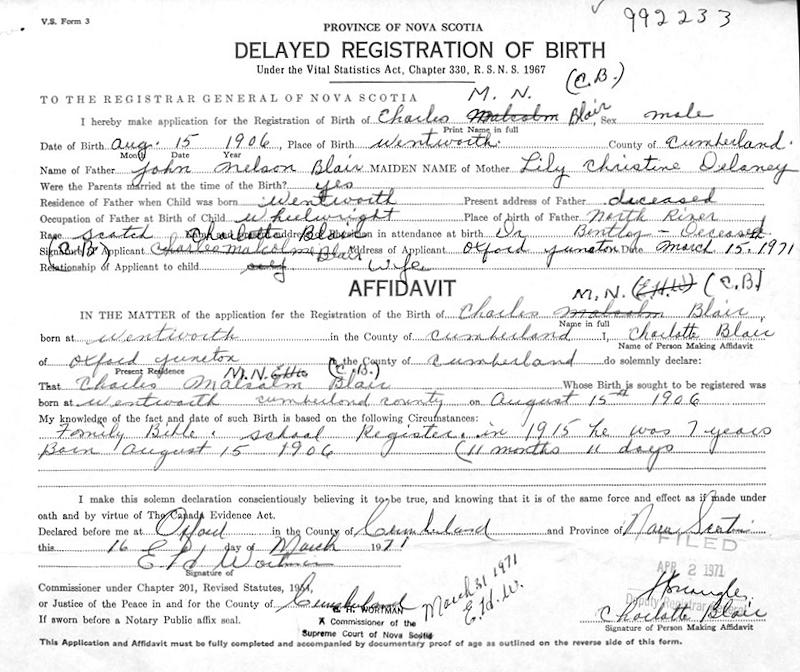 V.S. Form 3
992233
PROVINCE OF NOVA SCOTIA
DELAYED REGISTRATION OF BIRTH
Under the Vital Statistics Act, Chapter 330, R. S. N. S. 1967
M. N. (C.B.)
TO THE REGISTRAR GENERAL OF NOVA SCOTIA
I hereby make application for the Registration of Birth of Charles Malcolm Blair, Sex male
Print Name in full
Date of Birth Aug. 15 1906, Place of Birth Wentworth. County of Cumberland.
Month Date Year
Name of Father John Nelson Blair MAIDEN NAME of Mother Lily Christine Delaney
Were the Parents married at the time of the Birth? yes
Residence of Father when Child was born Wentworth Present address of Father deceased
Occupation of Father at Birth of Child Wheelwright Place of birth of Father North River
Race Scotch Charlotte Blair in attendance at birth Dr Bentley - Deceased
(C.B) Signature of Applicant Charles Malcolm Blair Address of Applicant Oxford Junction Date March 15, 1971
Relationship of Applicant to child self Wife
AFFIDAVIT
M.N. (E.H.W) (C.B)
IN THE MATTER of the application for the Registration of the Birth of Charles Malcolm Blair,
Name in full
born at Wentworth in the County of Cumberland I, Charlotte Blair
Name of Person Making Affidavit
of Oxford Junction in the County of Cumberland do solemnly declare:
Present Residence
M.N. (C.B.)
That Charles Malsalm Blair Whose Birth is sought to be registered was
born at Wentworth Cumberland County on August 15th 1906
My knowledge of the fact and date of such Birth is based on the following Circumstances:
Family Bible. School Register. in 1915 he was 7 years
Born August 15 1906 (11 months 11 days
I make this solemn declaration conscientiously believing it to be true, and knowing that it is of the same force and effect as if made under
oath and by virtue of The Canada Evidence Act.
Declared before me at Oxford in the County of Cumberland and Province of Nova Scotia
this 16 day of March 1971
FILED
APR 2 1971
Deputy Registrar General
E H Wortman
Signature of
Commissioner under Chapter 201, Revised Statutes, 1954,
or Justice of the Peace in and for the County of Cumberland
If sworn before a Notary Public affix seal.
E. H. WORTMAN
A Commissioner of the
Supreme Court of Nova Scotia
March 31 1971
E.H.W.
Charlotte Blair
Signature of Person Making Affidavit
This Application and Affidavit must be fully completed and accompanied by documentary proof of age as outlined on the reverse side of this form.